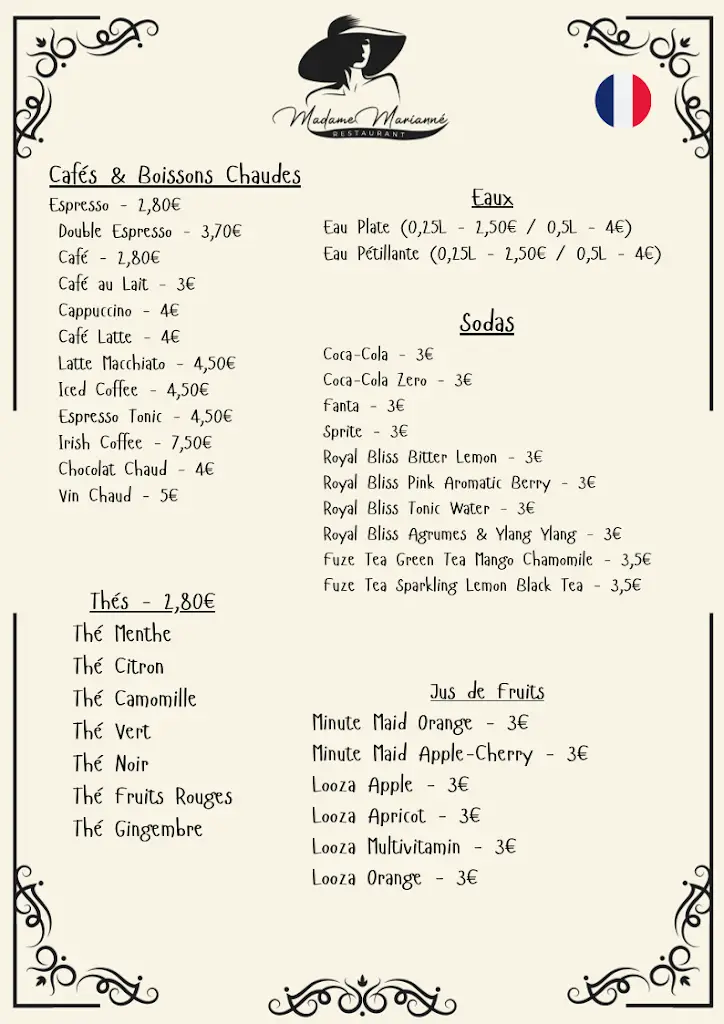 Madame Marianné
RESTAURANT
Cafés & Boissons Chaudes
Espresso - 2,80€
Double Espresso - 3,70€
Café - 2,80€
Café au Lait - 3€
Cappuccino - 4€
Café Latte - 4€
Latte Macchiato - 4,50€
Iced Coffee - 4,50€
Espresso Tonic - 4,50€
Irish Coffee - 7,50€
Chocolat Chaud - 4€
Vin Chaud - 5€
Thés - 2,80€
Thé Menthe
Thé Citron
Thé Camomille
Thé Vert
Thé Noir
Thé Fruits Rouges
Thé Gingembre
Eaux
Eau Plate (0,25L - 2,50€ / 0,5L - 4€)
Eau Pétillante (0,25L - 2,50€ / 0,5L - 4€)
Sodas
Coca-Cola - 3€
Coca-Cola Zero - 3€
Fanta - 3€
Sprite - 3€
Royal Bliss Bitter Lemon - 3€
Royal Bliss Pink Aromatic Berry - 3€
Royal Bliss Tonic Water - 3€
Royal Bliss Agrumes & Ylang Ylang - 3€
Fuze Tea Green Tea Mango Chamomile - 3,5€
Fuze Tea Sparkling Lemon Black Tea - 3,5€
Jus de Fruits
Minute Maid Orange - 3€
Minute Maid Apple-Cherry - 3€
Looza Apple - 3€
Looza Apricot - 3€
Looza Multivitamin - 3€
Looza Orange - 3€